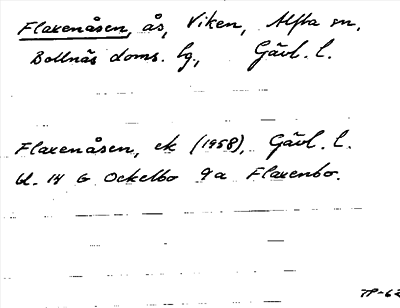 Flaxenåsen, ås, Viken, Alfta sn,
Bollnäs doms. hg., Gävl. l.
Flaxenåsen, ek (1958), Gävl. l.
bl. 14 G Ockelbo 9a Flaxenbo.
TP-62